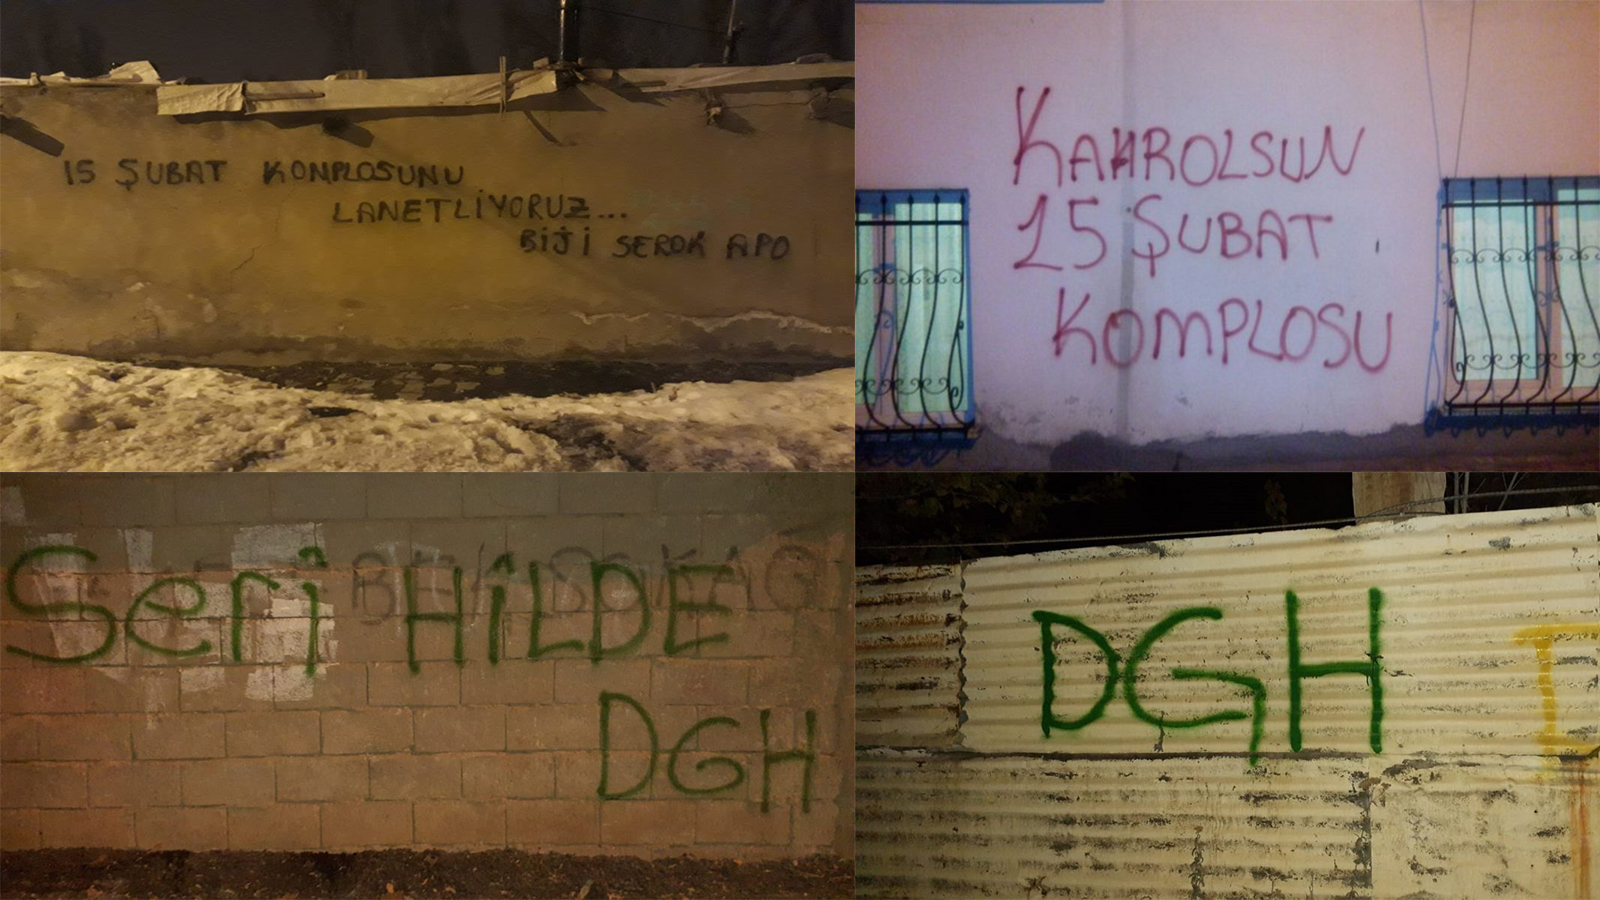 15 ŞUBAT KOMPLOSUNU
LANETLİYORUZ...
BİJİ SEROK APO
KAHROLSUN
15 ŞUBAT
KOMPLOSU
Serî HİLDE
DGH
DGH